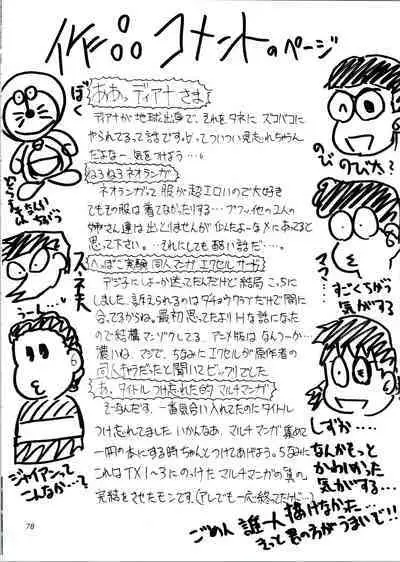 作品コメントのページ
ああっディアナさま
ディアナが地球出身で、それをタネに ズコバコに
やられてるって話です。どってついつい見忘れちゃうん
だよなー 気をつけよう…。
ねろねろ ネオランガ
ネオランガって 服が超エロいので大好き
でもその服は着てなかったりする…プフッ 他の2人の
姉さん達は出しませんが 似たよーなメにあってると
思って下さい。…それにしても 酷い話だ…。
へっぽこ実験 同人マンガ エクセル サーガ
デジ子にしよーか迷ってたんだけど 結局 こっちに
しました。訴えられるのは ダチョウクラブだけで間に
合ってるからね。最初思ってたより Hな話になった
ので結構 マンゾクしてる。アニメ版は なんつーか…
濃いね、マジで。ちなみに エクセルが 原作者の
同人キャラだったと聞いて ビックリでした
あ、タイトル つけ忘れた的 マルチマンガ
そーなんだす、一番気合い入れてたのに タイトル
つけ忘れてました いかんなあ。マルチマンガ 集めて
一冊の本にする時ちゃんとつけてあげよう。ちなみに
これは TX1〜3に のっけた マルチマンガの 真の
完結をさせたモンです。(アレでも一応 終ってたけど…)
ぼく
のび のびた?
スネ夫
うーん…
すごくちがう
気がする
ジャイアンって
こんなか…?
しずか…
なんかもっと
かわいかった
気がする…
ごめん 誰一人 描けなかった…
きっと君の方がうまいで!!
78